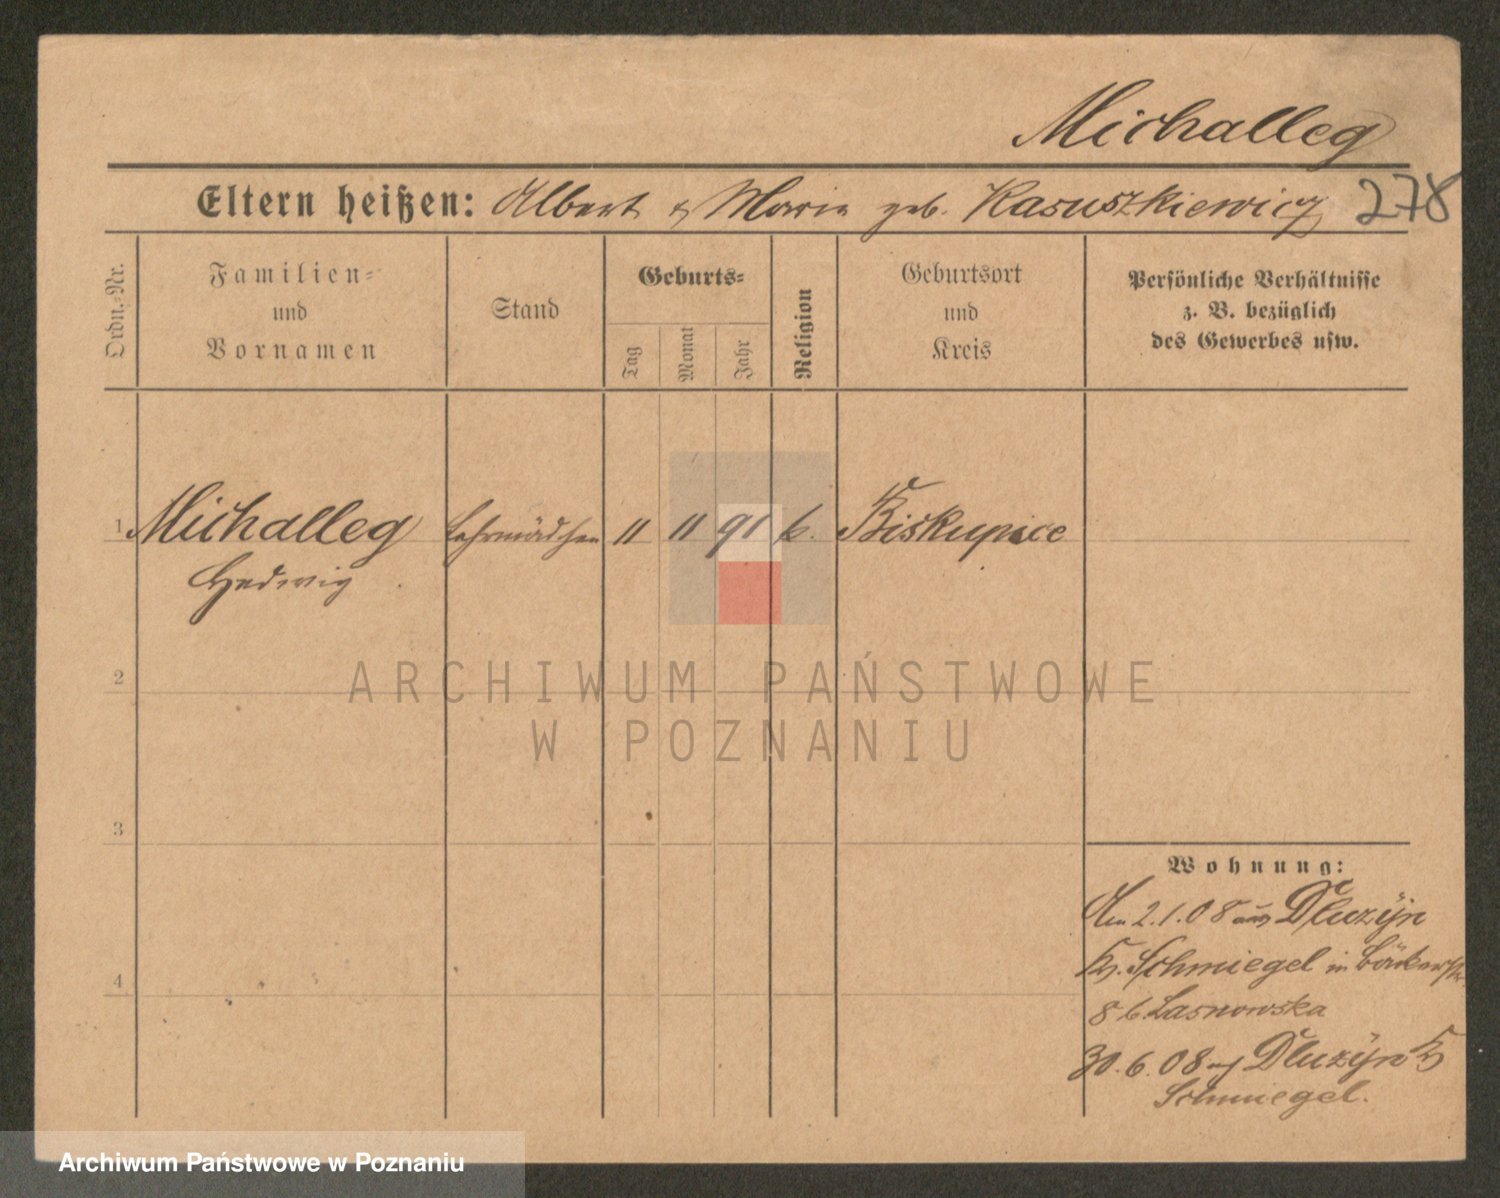 Michalleg
Eltern heißen: Albert & Maria geb. Kasuszkiewicz 278
Ordn.-Nr.
Familien-
und
Vornamen
Stand
Geburts-
Tag
Monat
Jahr
Religion
Geburtsort
und
Kreis
Persönliche Verhältnisse
z. B. bezüglich
des Gewerbes usw.
1 Michalleg Lehrmädchen 11 11 91 k. Biskupice
Hedwig
2
ARCHIWUM PAŃSTWOWE
W POZNANIU
3
Wohnung:
Am 2.1.08 aus Dluzyn
Kr. Schmiegel in Bäckerstr
8 b Lasnowska
4
30.6.08 auf Dluzyn Kr
Schmiegel.
Archiwum Państwowe w Poznaniu